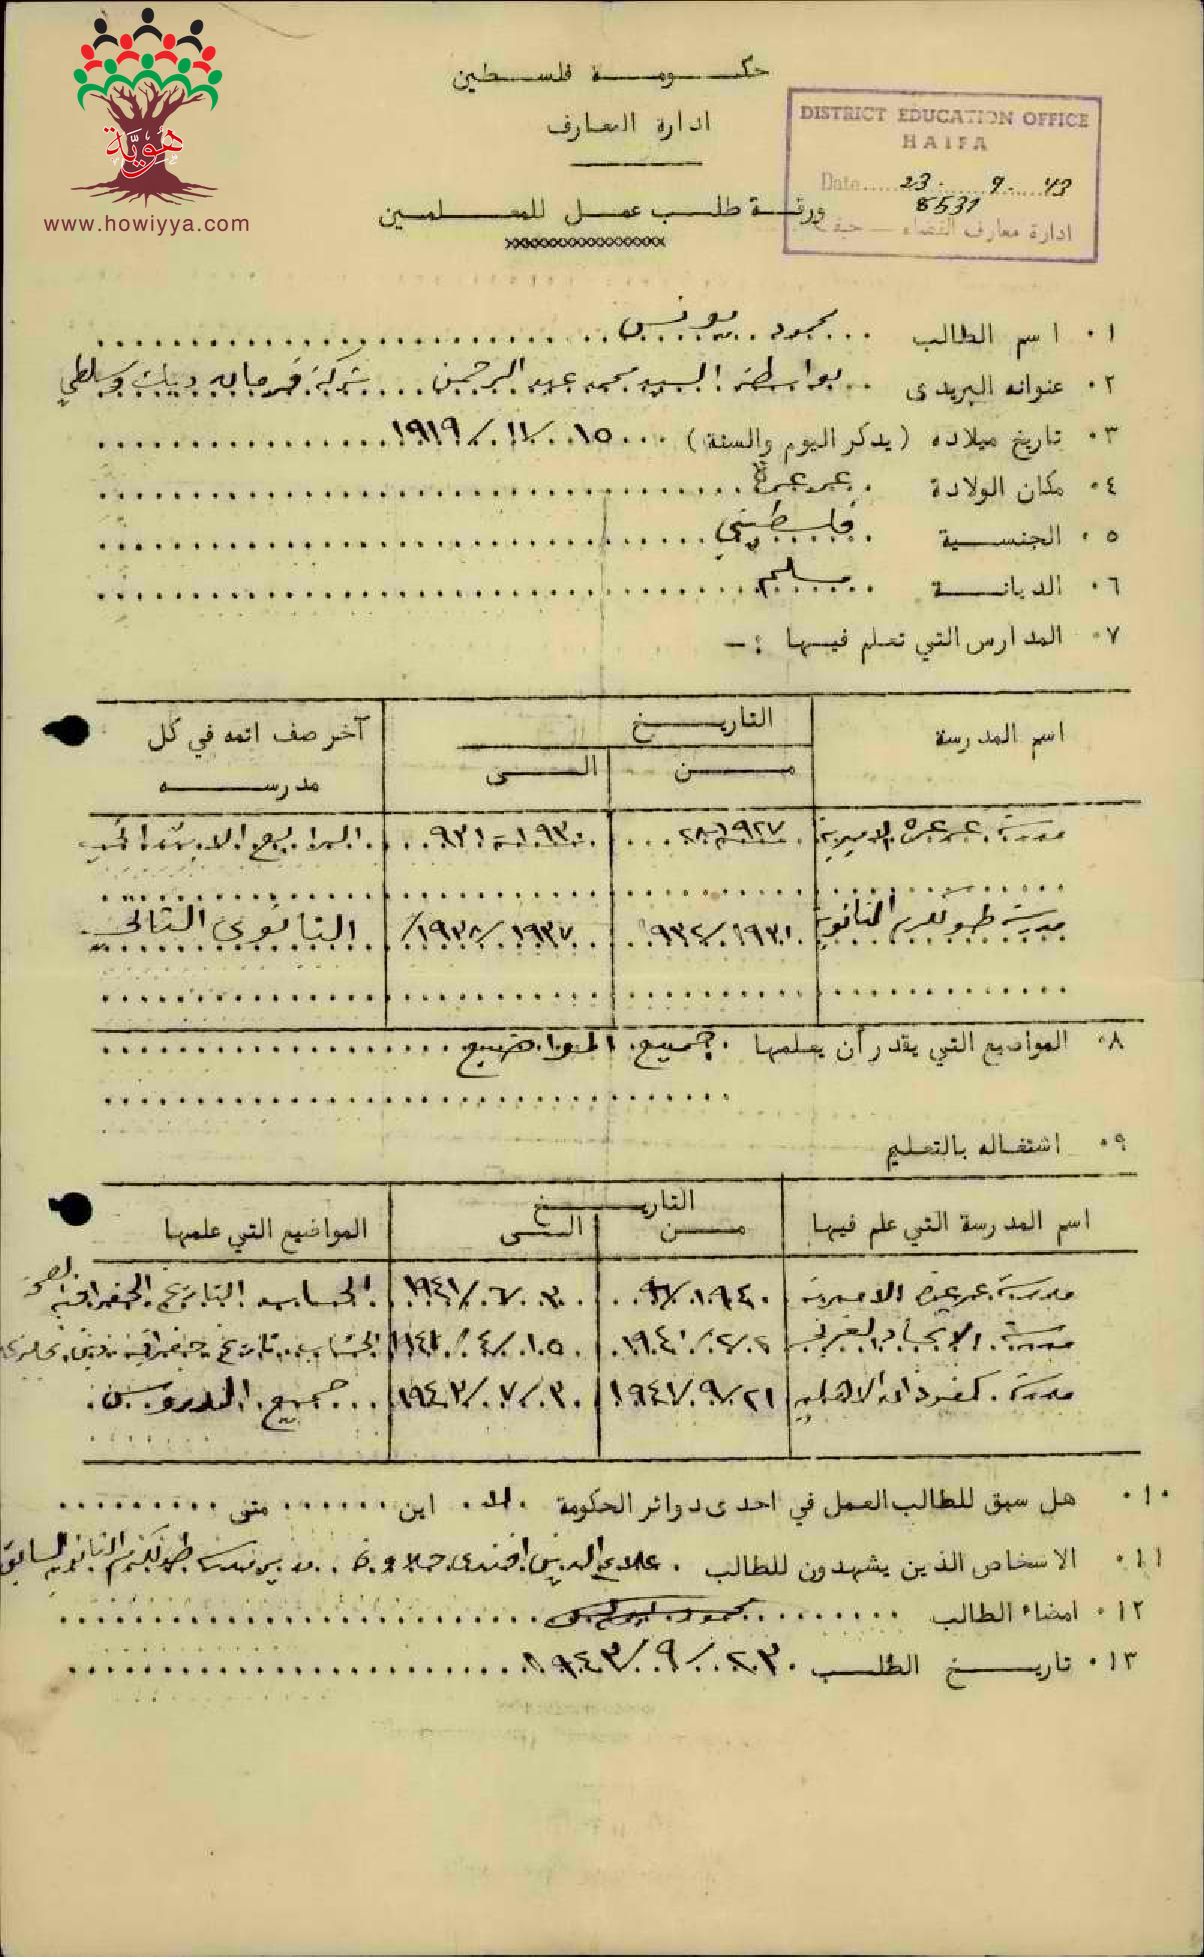 هوية
www.howiyya.com
حكومة فلسطين
ادارة المعارف
DISTRICT EDUCATION OFFICE
HAIFA
Date ..... 23 . 9 . 43
5531
ادارة معارف القضاء — حيفا
ورقة طلب عمل للمعلمين
١٠ اسم الطالب محمود يونس
٢٠ عنوانه البريدى بواسطة السيد محمد عبد الرحمن شركة فرمان
٣٠ تاريخ ميلاده (يذكر اليوم والسنة) ١٥/١١/١٩١٩
٤٠ مكان الولادة عرعرة
٥٠ الجنسية فلسطيني
٦٠ الديانة مسلم
٧٠ المدارس التي تعلم فيها :-
اسم المدرسة التاريخ آخر صف اتمه في كل
من الى مدرسه
مدرسة عرعره الاميرية ١٩٢٧-٢٨ ١٩٣٠-٩٣١ الرابع الابتدائي
مدرسة طولكرم الثانوية ١٩٣١/٩٣٢ ١٩٣٧/١٩٣٨ الثانوي الثاني
٨٠ المواضيع التي يقدر أن يعلمها جميع المواضيع
٩٠ اشتغاله بالتعليم
اسم المدرسة التي علم فيها التاريخ المواضيع التي علمها
من الى
مدرسة عرعرة الاميرية ١٩٤٠ ٣٠/٦/١٩٤١ الحساب التاريخ الجغرافية الصحة
مدرسة الاتحاد ١٥/٤ الحساب تاريخ جغرافية
مدرسة الاهلية ٢١/٩/١٩٤٢ ٣٠/٧/١٩٤٣ جميع الدروس
١٠٠ هل سبق للطالب العمل في احدى دوائر الحكومة لا اين متى
١١٠ الاشخاص الذين يشهدون للطالب علاء الدين افندى حلاوة مدير مدرسة طولكرم الثانوية السابق
١٢٠ امضاء الطالب محمود يونس
١٣٠ تاريخ الطلب ٢٣/٩/١٩٤٣